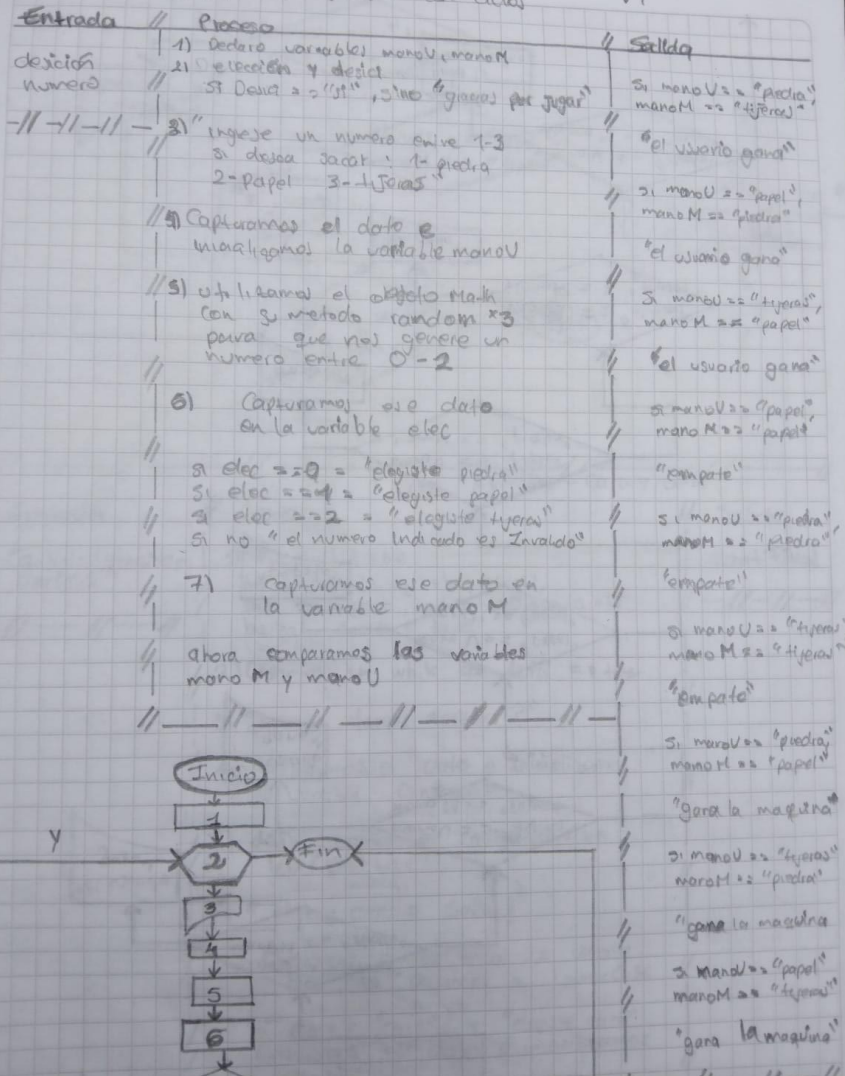 Entrada
desición
numero
Proceso
1) Declaro variables manoU, manoM
2) elección y desici
si Desici == "si", sino "gracias por jugar"
3) "Ingrese un numero entre 1-3
si desea sacar: 1- piedra
2-papel 3-tijeras"
4) Capturamos el dato e
la variable manoU
5) utilizamos el objeto Math
con su metodo random *3
para que nos genere un
numero entre 0-2
6) Capturamos ese dato
en la variable elec
si elec ==0 = "elegiste piedra"
si elec ==1 = "elegiste papel"
si elec ==2 = "elegiste tijeras"
si no "el numero indicado es Invalido"
7) capturamos ese dato en
la variable mano M
ahora comparamos las variables
mano M y mano U
Salida
si manoU == "piedra",
manoM == "tijeras"
"el usuario gana"
si manoU == "papel",
mano M == "piedra"
"el usuario gana"
Si manoU == "tijeras",
mano M == "papel"
"el usuario gana"
si manoU == "papel",
mano M == "papel"
"empate"
si manoU == "piedra",
manoM == "piedra"
"empate"
si manoU == "tijeras"
mano M == "tijeras"
"empate"
si manoU == "piedra"
mano M == "papel"
"gana la maquina"
si manoU == "tijeras"
manoM == "piedra"
"gana la maquina
si manoU == "papel"
manoM == "tijeras"
"gana la maquina"
Inicio
1
y
2
Fin
3
4
5
6